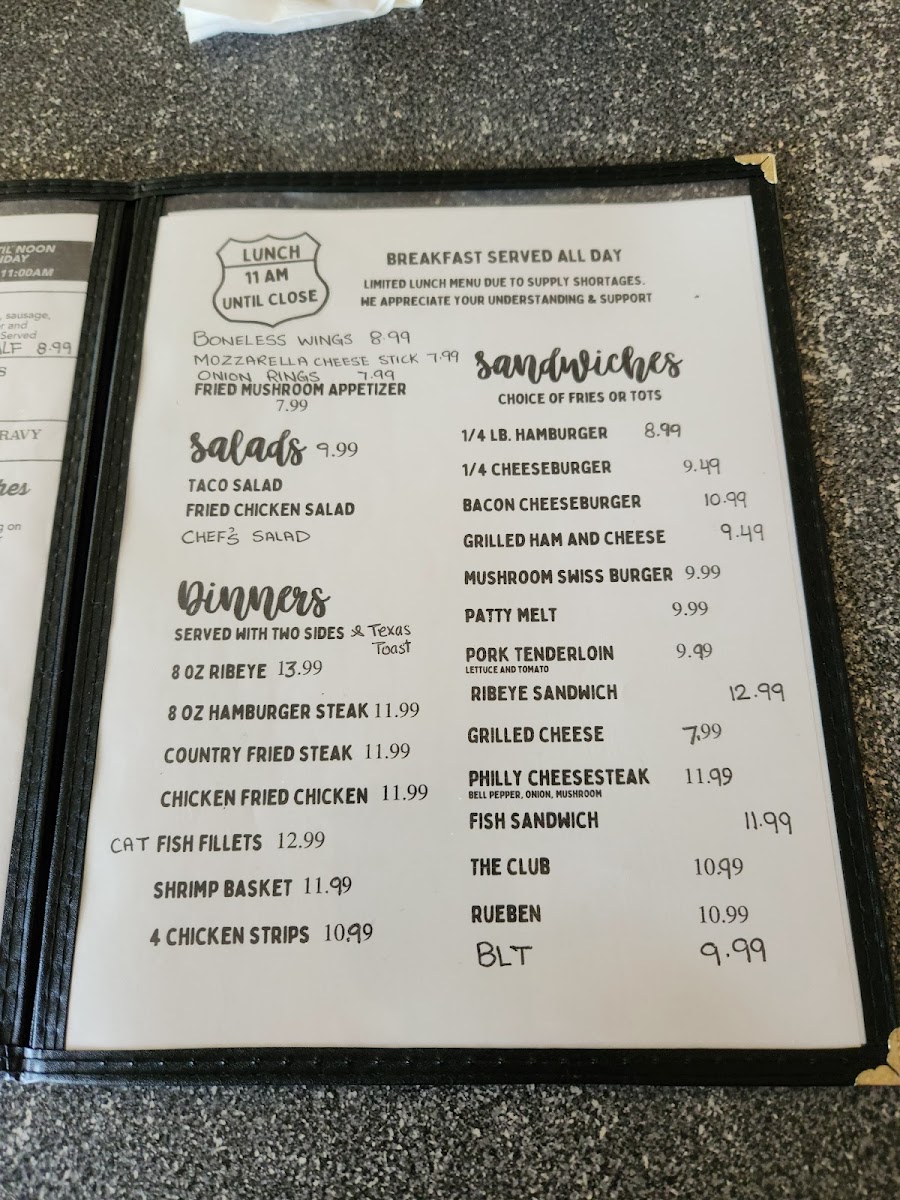 TIL NOON
11:00AM
, sausage,
r and
Served
ALF 8.99
S
RAVY
g on
LUNCH
11 AM
UNTIL CLOSE
BREAKFAST SERVED ALL DAY
LIMITED LUNCH MENU DUE TO SUPPLY SHORTAGES.
WE APPRECIATE YOUR UNDERSTANDING & SUPPORT
BONELESS WINGS 8.99
MOZZARELLA CHEESE STICK 7.99
ONION RINGS 7.99
FRIED MUSHROOM APPETIZER
7.99
Salads 9.99
TACO SALAD
FRIED CHICKEN SALAD
CHEF'S SALAD
Dinners
SERVED WITH TWO SIDES & Texas
Toast
8 OZ RIBEYE 13.99
8 OZ HAMBURGER STEAK 11.99
COUNTRY FRIED STEAK 11.99
CHICKEN FRIED CHICKEN 11.99
CAT FISH FILLETS 12.99
SHRIMP BASKET 11.99
4 CHICKEN STRIPS 10.99
Sandwiches
CHOICE OF FRIES OR TOTS
1/4 LB. HAMBURGER 8.99
1/4 CHEESEBURGER 9.49
BACON CHEESEBURGER 10.99
GRILLED HAM AND CHEESE 9.49
MUSHROOM SWISS BURGER 9.99
PATTY MELT 9.99
PORK TENDERLOIN 9.99
LETTUCE AND TOMATO
RIBEYE SANDWICH 12.99
GRILLED CHEESE 7.99
PHILLY CHEESESTEAK 11.99
BELL PEPPER, ONION, MUSHROOM
FISH SANDWICH 11.99
THE CLUB 10.99
RUEBEN 10.99
BLT 9.99